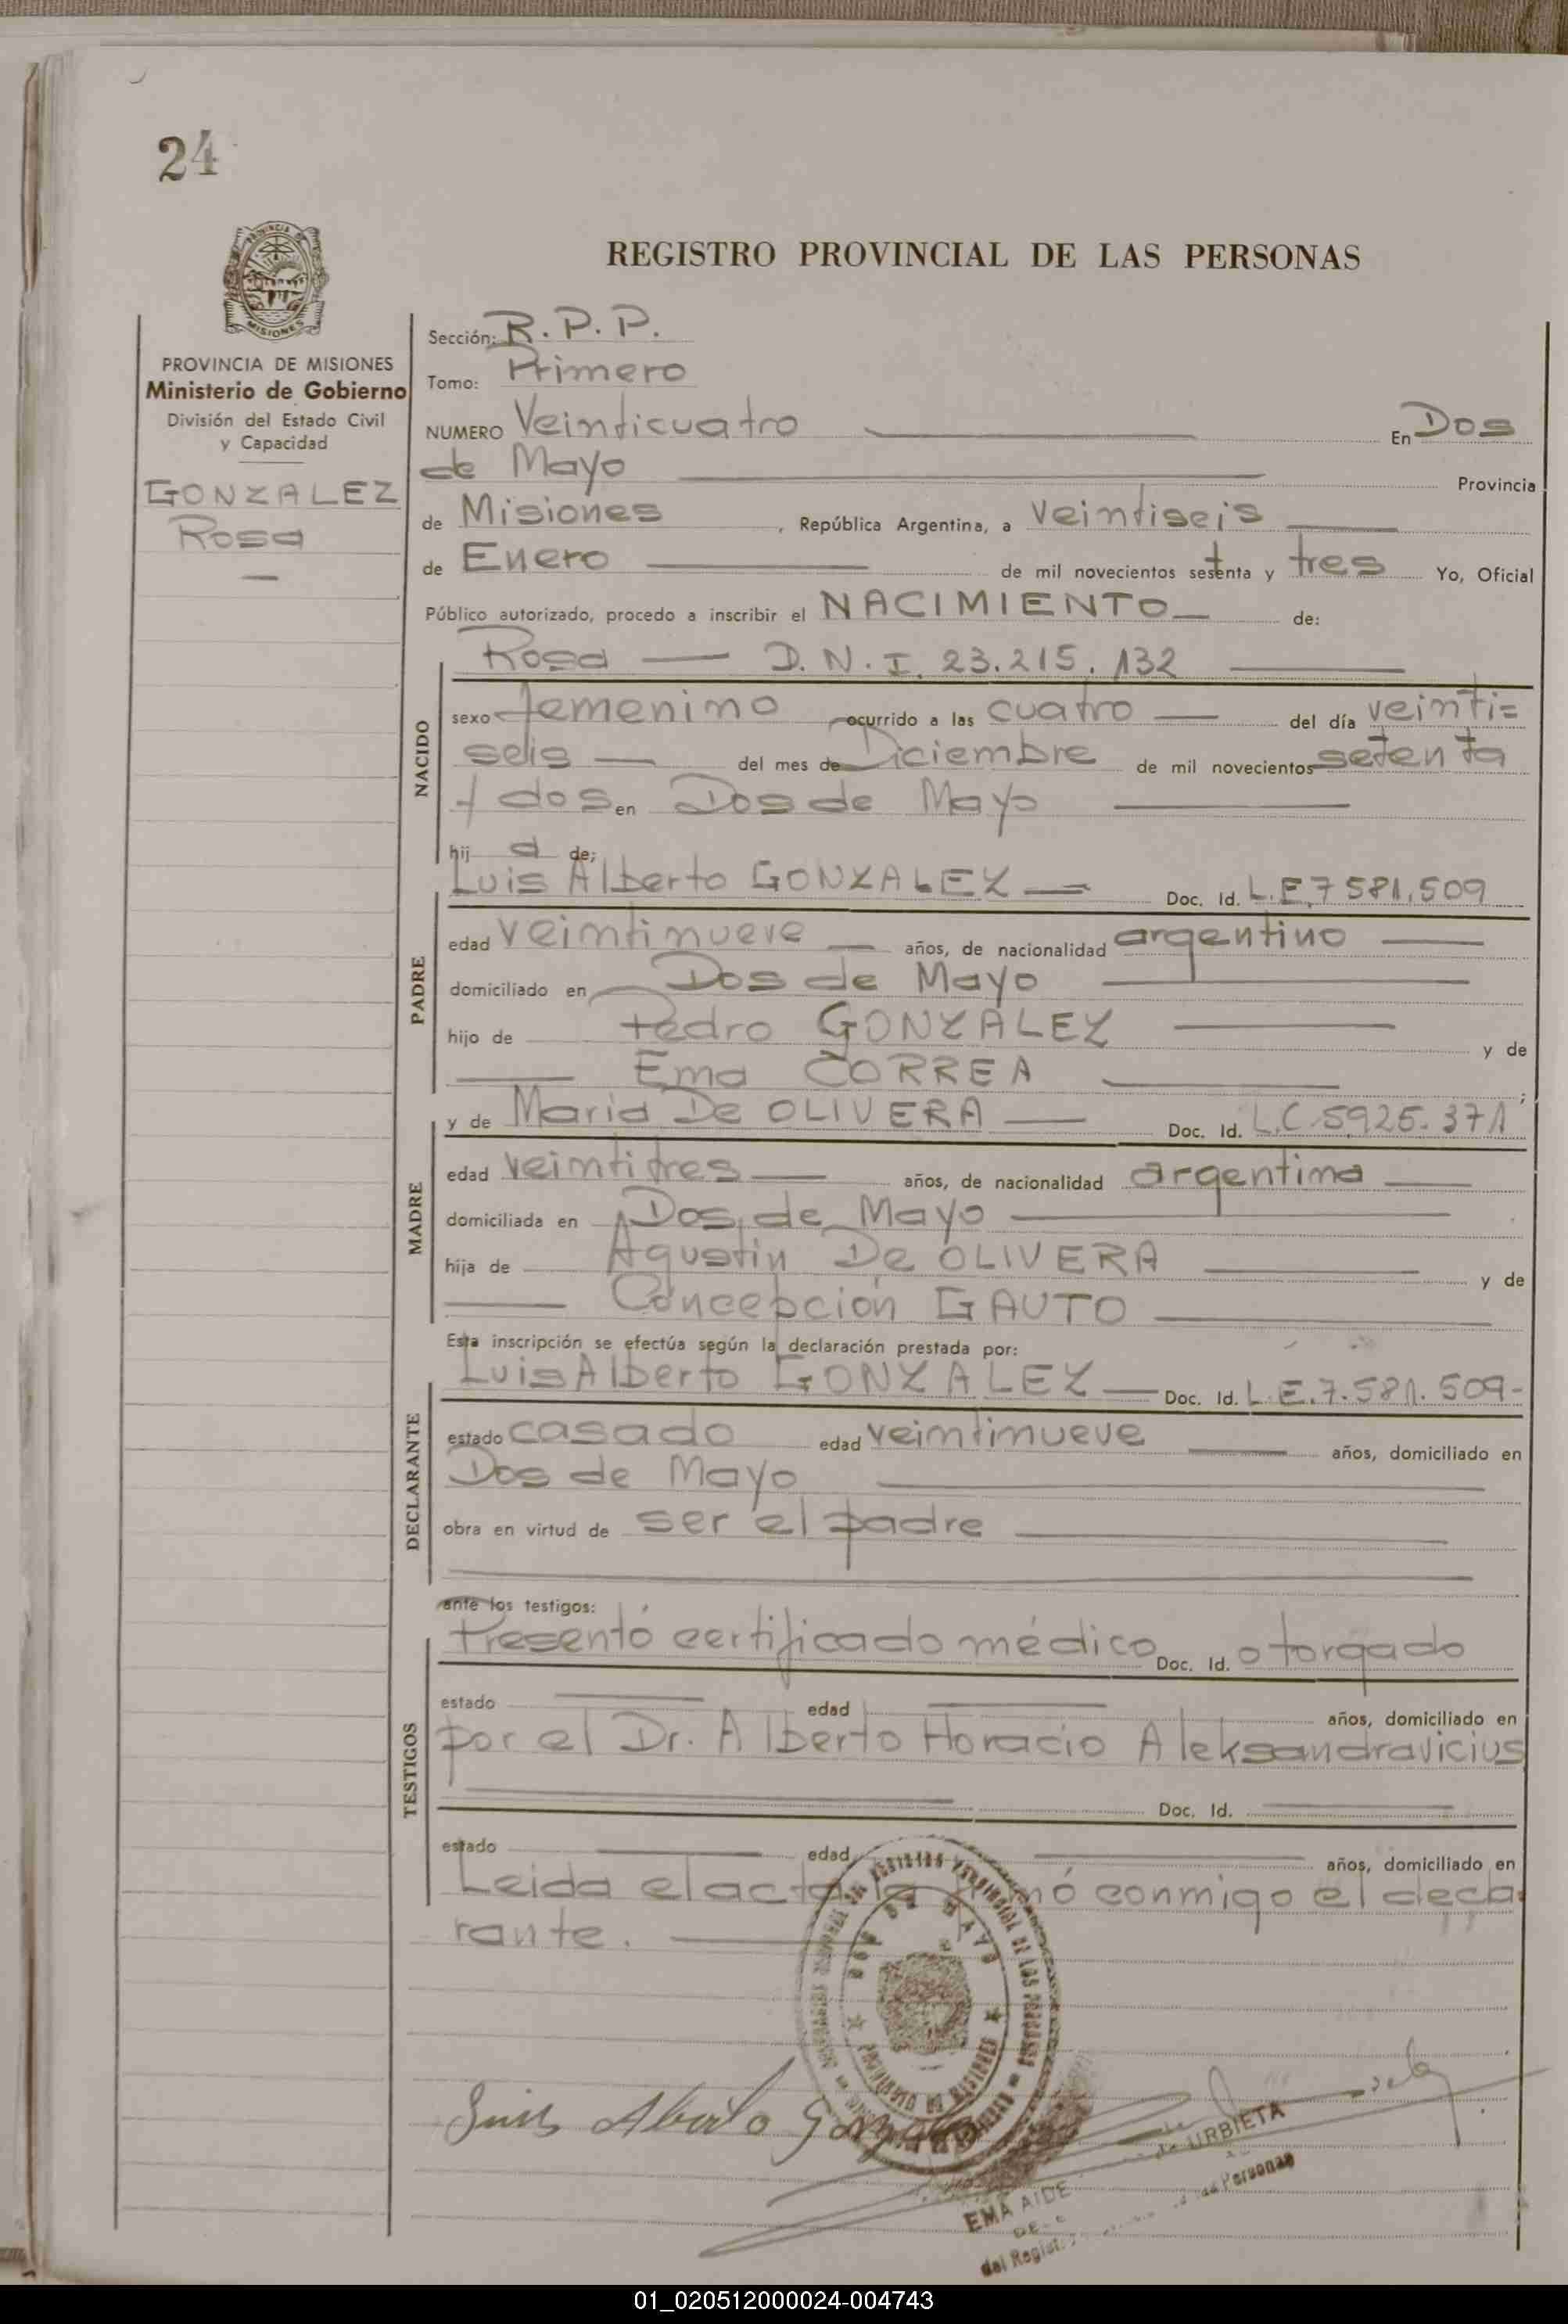 24
REGISTRO PROVINCIAL DE LAS PERSONAS
MISIONES
PROVINCIA DE MISIONES
Ministerio de Gobierno
División del Estado Civil
y Capacidad
GONZALEZ
Rosa
Sección: R. P. P.
Tomo: Primero
NUMERO Veinticuatro En Dos
de Mayo Provincia
de Misiones, República Argentina, a veintiseis
de Enero de mil novecientos setenta y tres Yo, Oficial
Público autorizado, procedo a inscribir el NACIMIENTO de:
Rosa — D. N. I. 23.215.132
NACIDO
sexo femenino ocurrido a las cuatro del día veinti=
seis del mes de Diciembre de mil novecientos setenta
y dos en Dos de Mayo
hij a de;
Luis Alberto GONZALEZ Doc. Id. L.E.7581.509
PADRE
edad veintinueve años, de nacionalidad argentino
domiciliado en Dos de Mayo
hijo de Pedro GONZALEZ y de
Ema CORREA ;
y de Maria De OLIVERA Doc. Id. L.C.5925.371
MADRE
edad veintitres años, de nacionalidad argentina
domiciliada en Dos de Mayo
hija de Agustin De OLIVERA y de
Concepción GAUTO
Esta inscripción se efectúa según la declaración prestada por:
Luis Alberto GONZALEZ Doc. Id. L.E.7.581.509-
DECLARANTE
estado casado edad veintinueve años, domiciliado en
Dos de Mayo
obra en virtud de ser el padre
ante los testigos:
Presentó certificado médico Doc. Id. otorgado
TESTIGOS
estado edad años, domiciliado en
por el Dr. Alberto Horacio Aleksandravicius
Doc. Id.
estado edad años, domiciliado en
Leida el acta la firmó conmigo el decla-
rante.
DOS DE MAYO
PROVINCIA DE MISIONES
Luis Alberto Gonzalez
EMA AIDE de URBIETA
del Regist. de las Personas
01_020512000024-004743